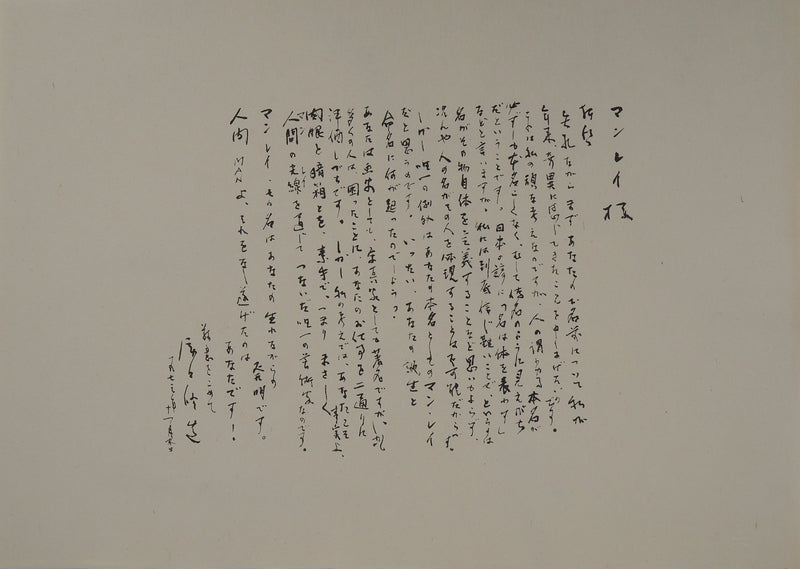 マン レイ 様
拝啓
失礼ながら まず あなたの御名前について 私が
年来、奇異に感じてきたことを申し上げたいのです。
これは私の頑な考えなのですが、人の謂わゆる本名が
必ずしも本名らしくなく、むしろ偽名のように見えがち
だということです。日本の諺に「名は体を表わす」
などと言いますが、私には到底信じ難いことで
名がその物自体を定義することなど思いもよらず、
況んや人の名がその人を体現することは不可能だからです。
しかし唯一の例外はあなたの本名としてのマン・レイ
だと思うのです。いったい、あなたの誕生と
命名に何が起ったのでしょう?
あなたは画家としても、写真家としても著名ですが、
多くの人は、困ったことに、あなたのお仕事を二通りに
評価しがちです。しかし私の考えでは、あなたこそ 事実上、
肉眼と暗箱とを、素手で、つまり まさしく
人間の光線を通して つないだ唯一の芸術家なのです。
マン レイ
マン レイ、その名はあなたの生れながらの
発明です。
人間 MAN よ、それをなし遂げたのは
あなたです!
敬意をこめて
瀧口修造